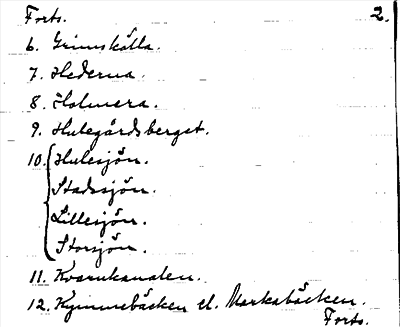 Forts. 2.
6. Grimskälla.
7. Hederna.
8. Holmera.
9. Hulegårdsberget.
10. Hulesjön.
Stadssjön.
Lillesjön.
Storsjön.
11. Kvarnkanalen.
12. Kymmebäcken el. Markabäcken.
Forts.